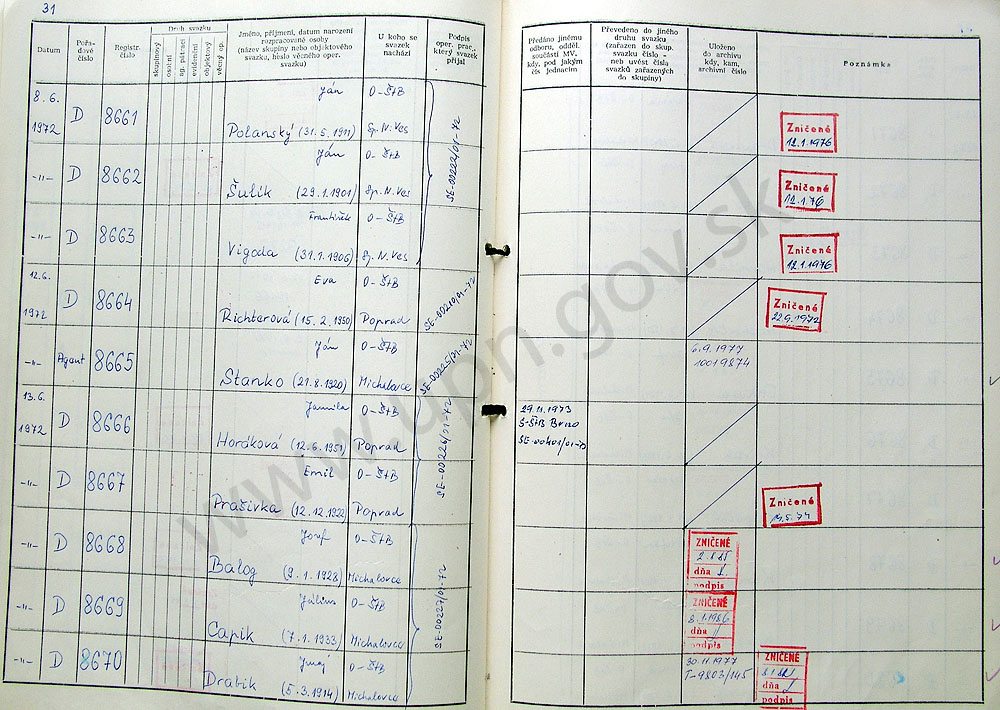 31
Datum
Pořa-
dové
číslo
Registr.
číslo
Druh svazku
skupinový
osobní
sg. pátrací
evidenční
objektový
věcný op.
Jméno, příjmení, datum narození
rozpracované osoby
(název skupiny nebo objektového
svazku, heslo věcného oper.
svazku)
U koho se
svazek
nachází
Podpis
oper. prac.
který svazek
přijal
Předáno jinému
odboru, odděl.
součásti MV.
kdy, pod jakým
čís jednacím
Převedeno do jiného
druhu svazku
(zařazen do skup.
svazku číslo -
neb uvést čísla
svazků zařazených
do skupiny)
Uloženo
do archivu
kdy, kam,
archivní číslo
Poznámka
8. 6.
1972
D
8661
Ján
Polanský (31. 5. 1911)
O-ŠtB
Sp. N. Ves
SE-00222/01-72
Zničené
12.1.1976
-"-
D
8662
Ján
Šulik (29.1.1901)
O-ŠtB
Sp. N. Ves
Zničené
12.1.76
-"-
D
8663
František
Vigoda (31.7.1906)
O-ŠtB
Sp. N. Ves
Zničené
12.1.1976
12.6.
1972
D
8664
Eva
Richterová (15. 2. 1950)
O-ŠtB
Poprad
SE-00210/01-72
Zničené
22.9.1972
-"-
Agent
8665
Ján
Stanko (21.8.1920)
O-ŠtB
Michalovce
SE-00225/01-72
6.9.1977
10019874
13.6.
1972
D
8666
Jamila
Horáková (12.6.1951)
O-ŠtB
Poprad
SE-00226/01-72
29.11.1973
S-ŠtB Brno
-"-
D
8667
Emil
Prašivka (12.12.1922)
O-ŠtB
Poprad
Zničené
-"-
D
8668
Jozef
Balog (9.1.1928)
O-ŠtB
Michalovce
SE-00227/01-72
ZNIČENÉ
dňa
podpis
-"-
D
8669
Július
Capik (7.1.1933)
O-ŠtB
Michalovce
ZNIČENÉ
8.1.1986
dňa
podpis
-"-
D
8670
Juraj
Drabik (5.3.1914)
O-ŠtB
Michalovce
30.11.1977
T-9803/145
ZNIČENÉ
dňa
podpis
www.upn.gov.sk